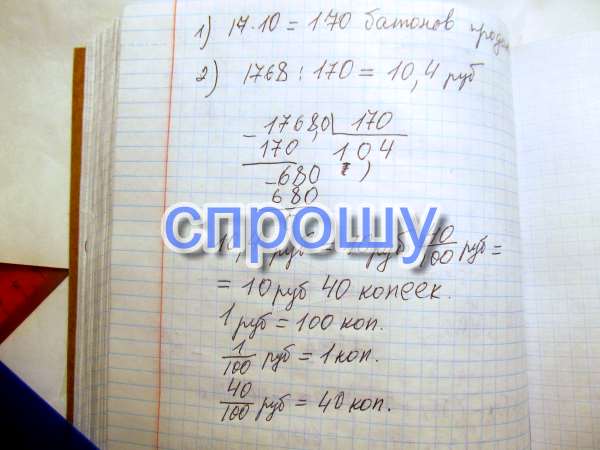 1) 17·10 = 170 батонов
2) 1768 : 170 = 10,4 руб
17680 | 170
170 10,4
680
680
спрошу
руб = руб 40/100 руб =
= 10 руб 40 копеек.
1 руб = 100 коп.
1/100 руб = 1 коп.
40/100 руб = 40 коп.